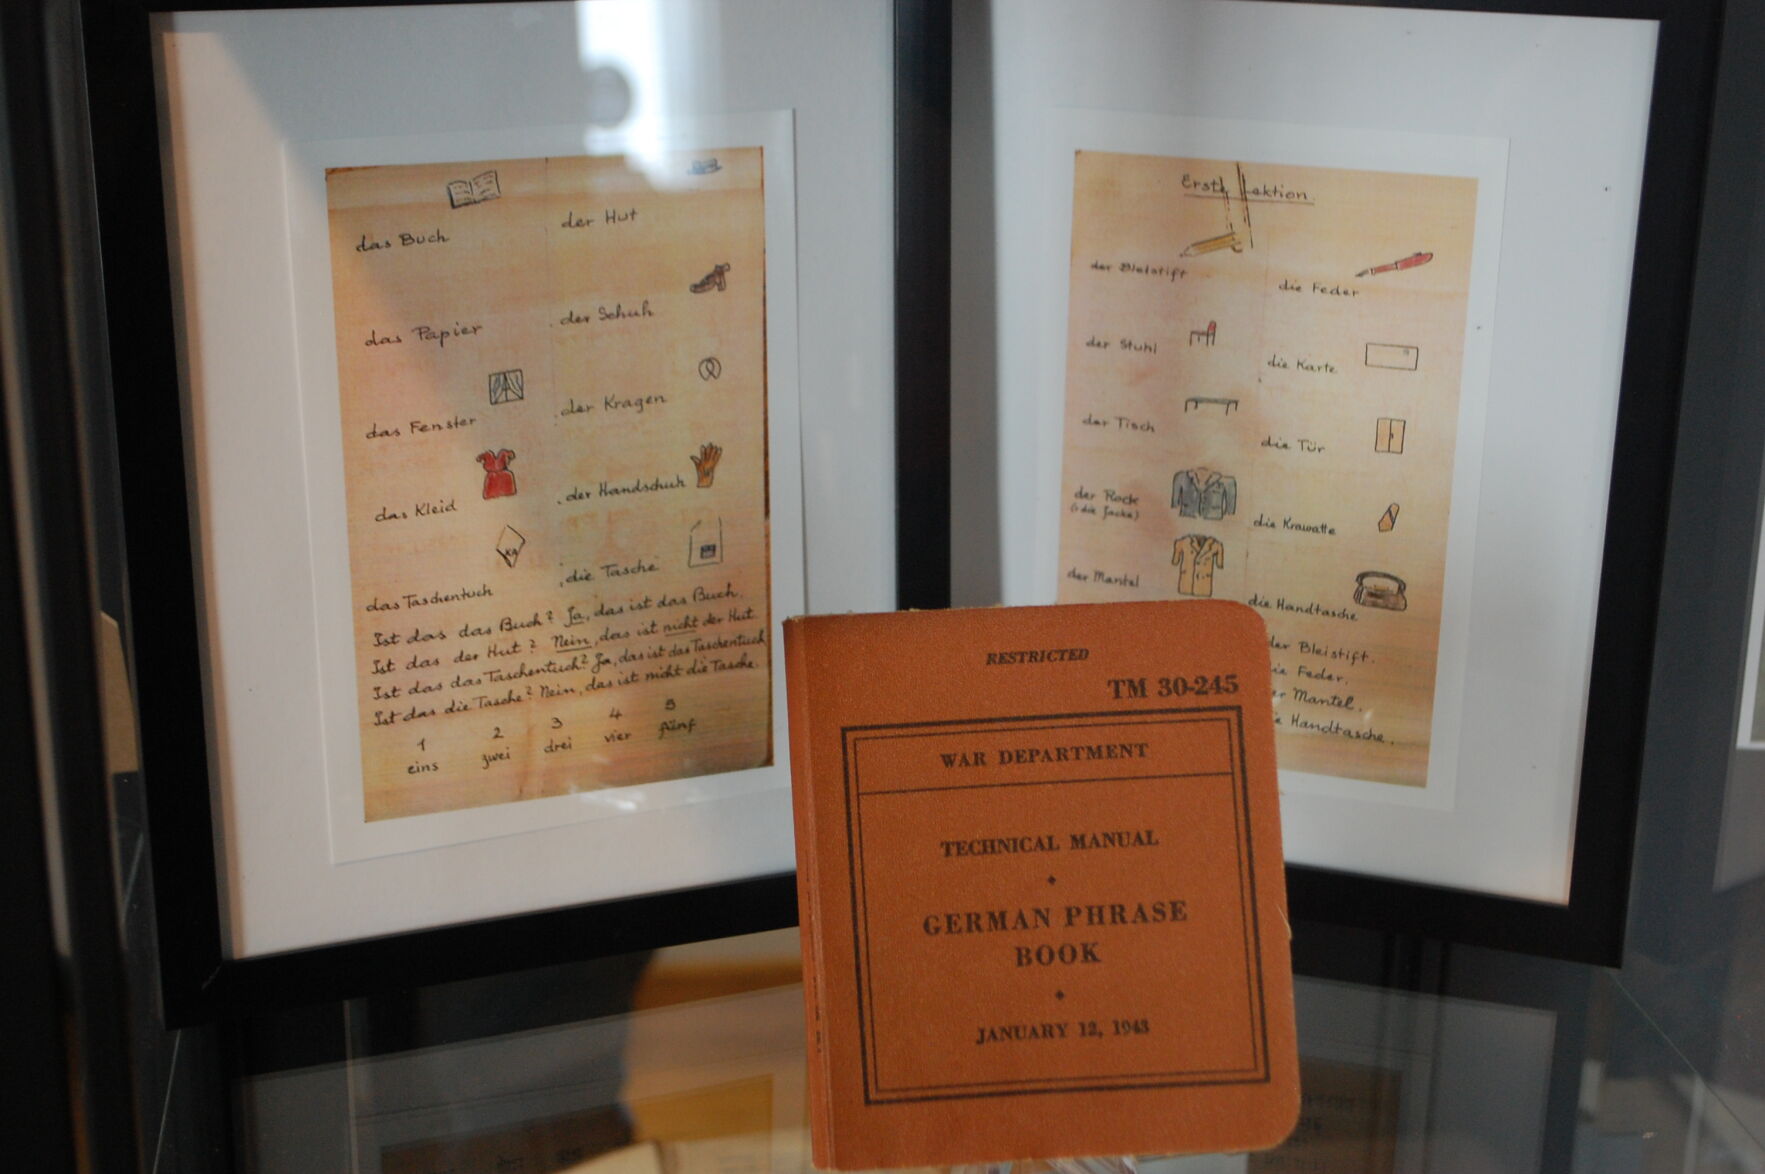 das Buch
der Hut
das Papier
der Schuh
das Fenster
der Kragen
das Kleid
der Handschuh
das Taschentuch
die Tasche
Ist das das Buch? Ja, das ist das Buch.
Ist das der Hut? Nein, das ist nicht der Hut.
Ist das das Taschentuch? Ja, das ist das Taschentuch
Ist das die Tasche? Nein, das ist nicht die Tasche.
1 2 3 4 5
eins zwei drei vier fünf
Erste Lektion
der Bleistift
die Feder
der Stuhl
die Karte
der Tisch
die Tür
der Rock
(die Jacke)
die Krawatte
der Mantel
die Handtasche
der Bleistift.
die Feder.
er Mantel.
e Handtasche.
RESTRICTED
TM 30-245
WAR DEPARTMENT
TECHNICAL MANUAL
GERMAN PHRASE
BOOK
JANUARY 12, 1943